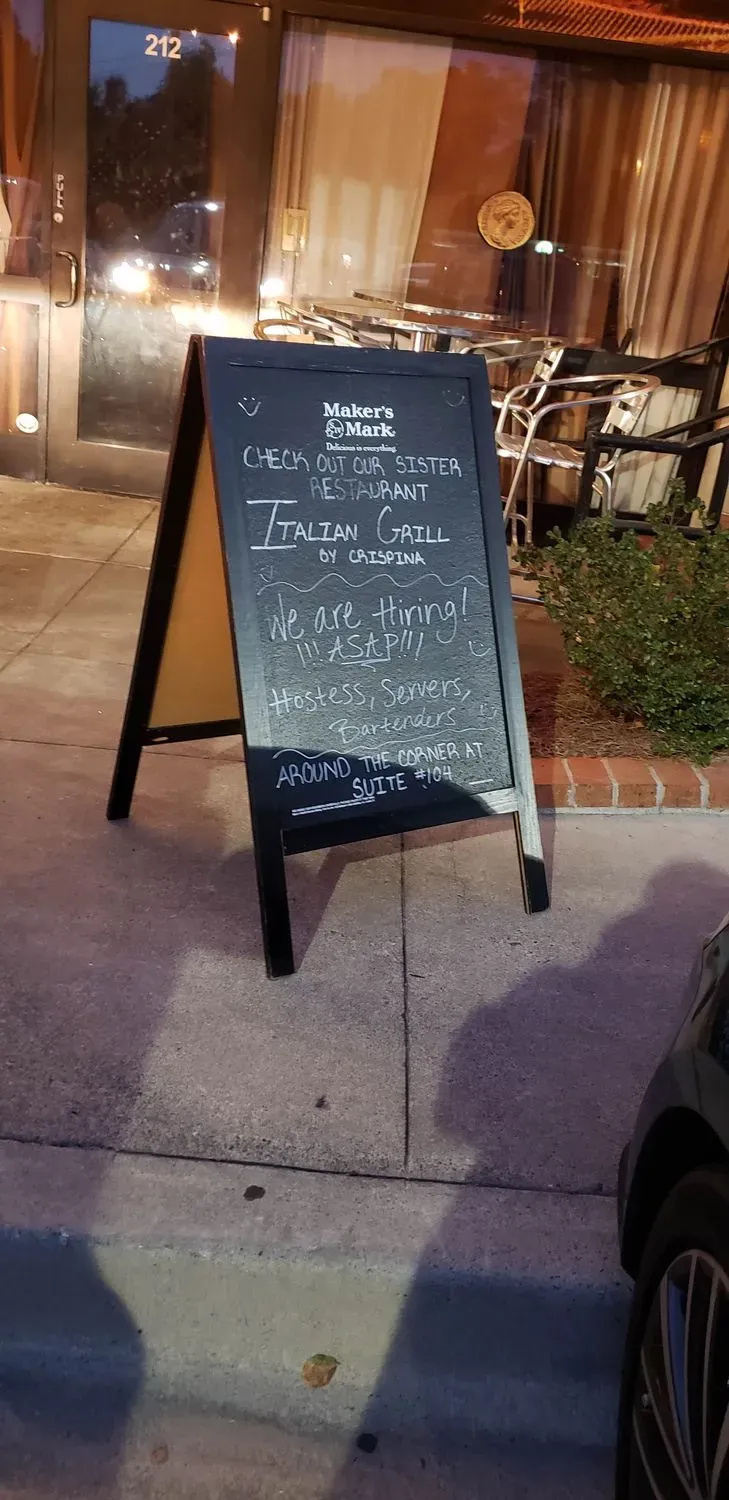 212
PULL
Maker's
Mark
Delicious is everything.
CHECK OUT OUR SISTER
RESTAURANT
ITALIAN GRILL
BY CRISPINA
We are Hiring!
!!! ASAP!!!
Hostess, Servers,
Bartenders
AROUND THE CORNER AT
SUITE #104